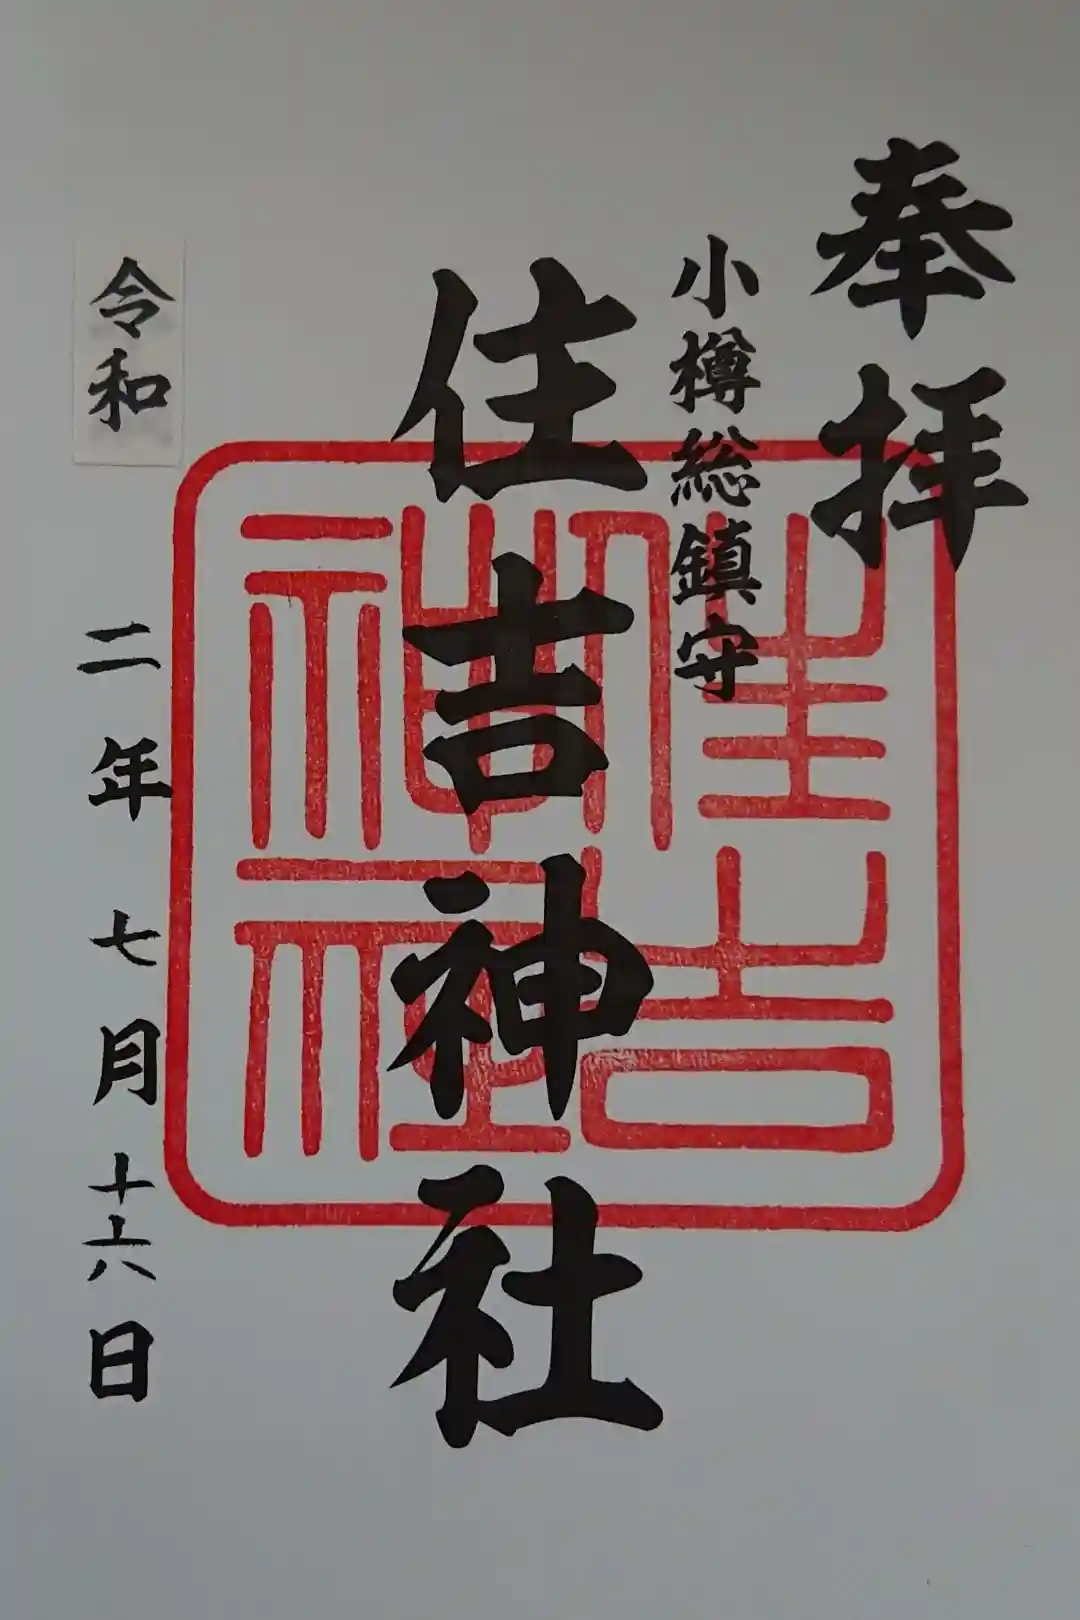 奉拝
小樽総鎮守
住吉神社
令和二年七月十六日
住吉神社